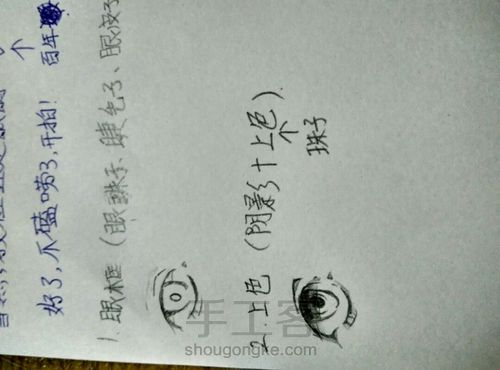 百年
好了,不磕唠了,开拍!
1.眼框(眼珠子、睫毛子、眼皮子
2.上色(阴影+上色).
珠子
手工客
shougongke.com